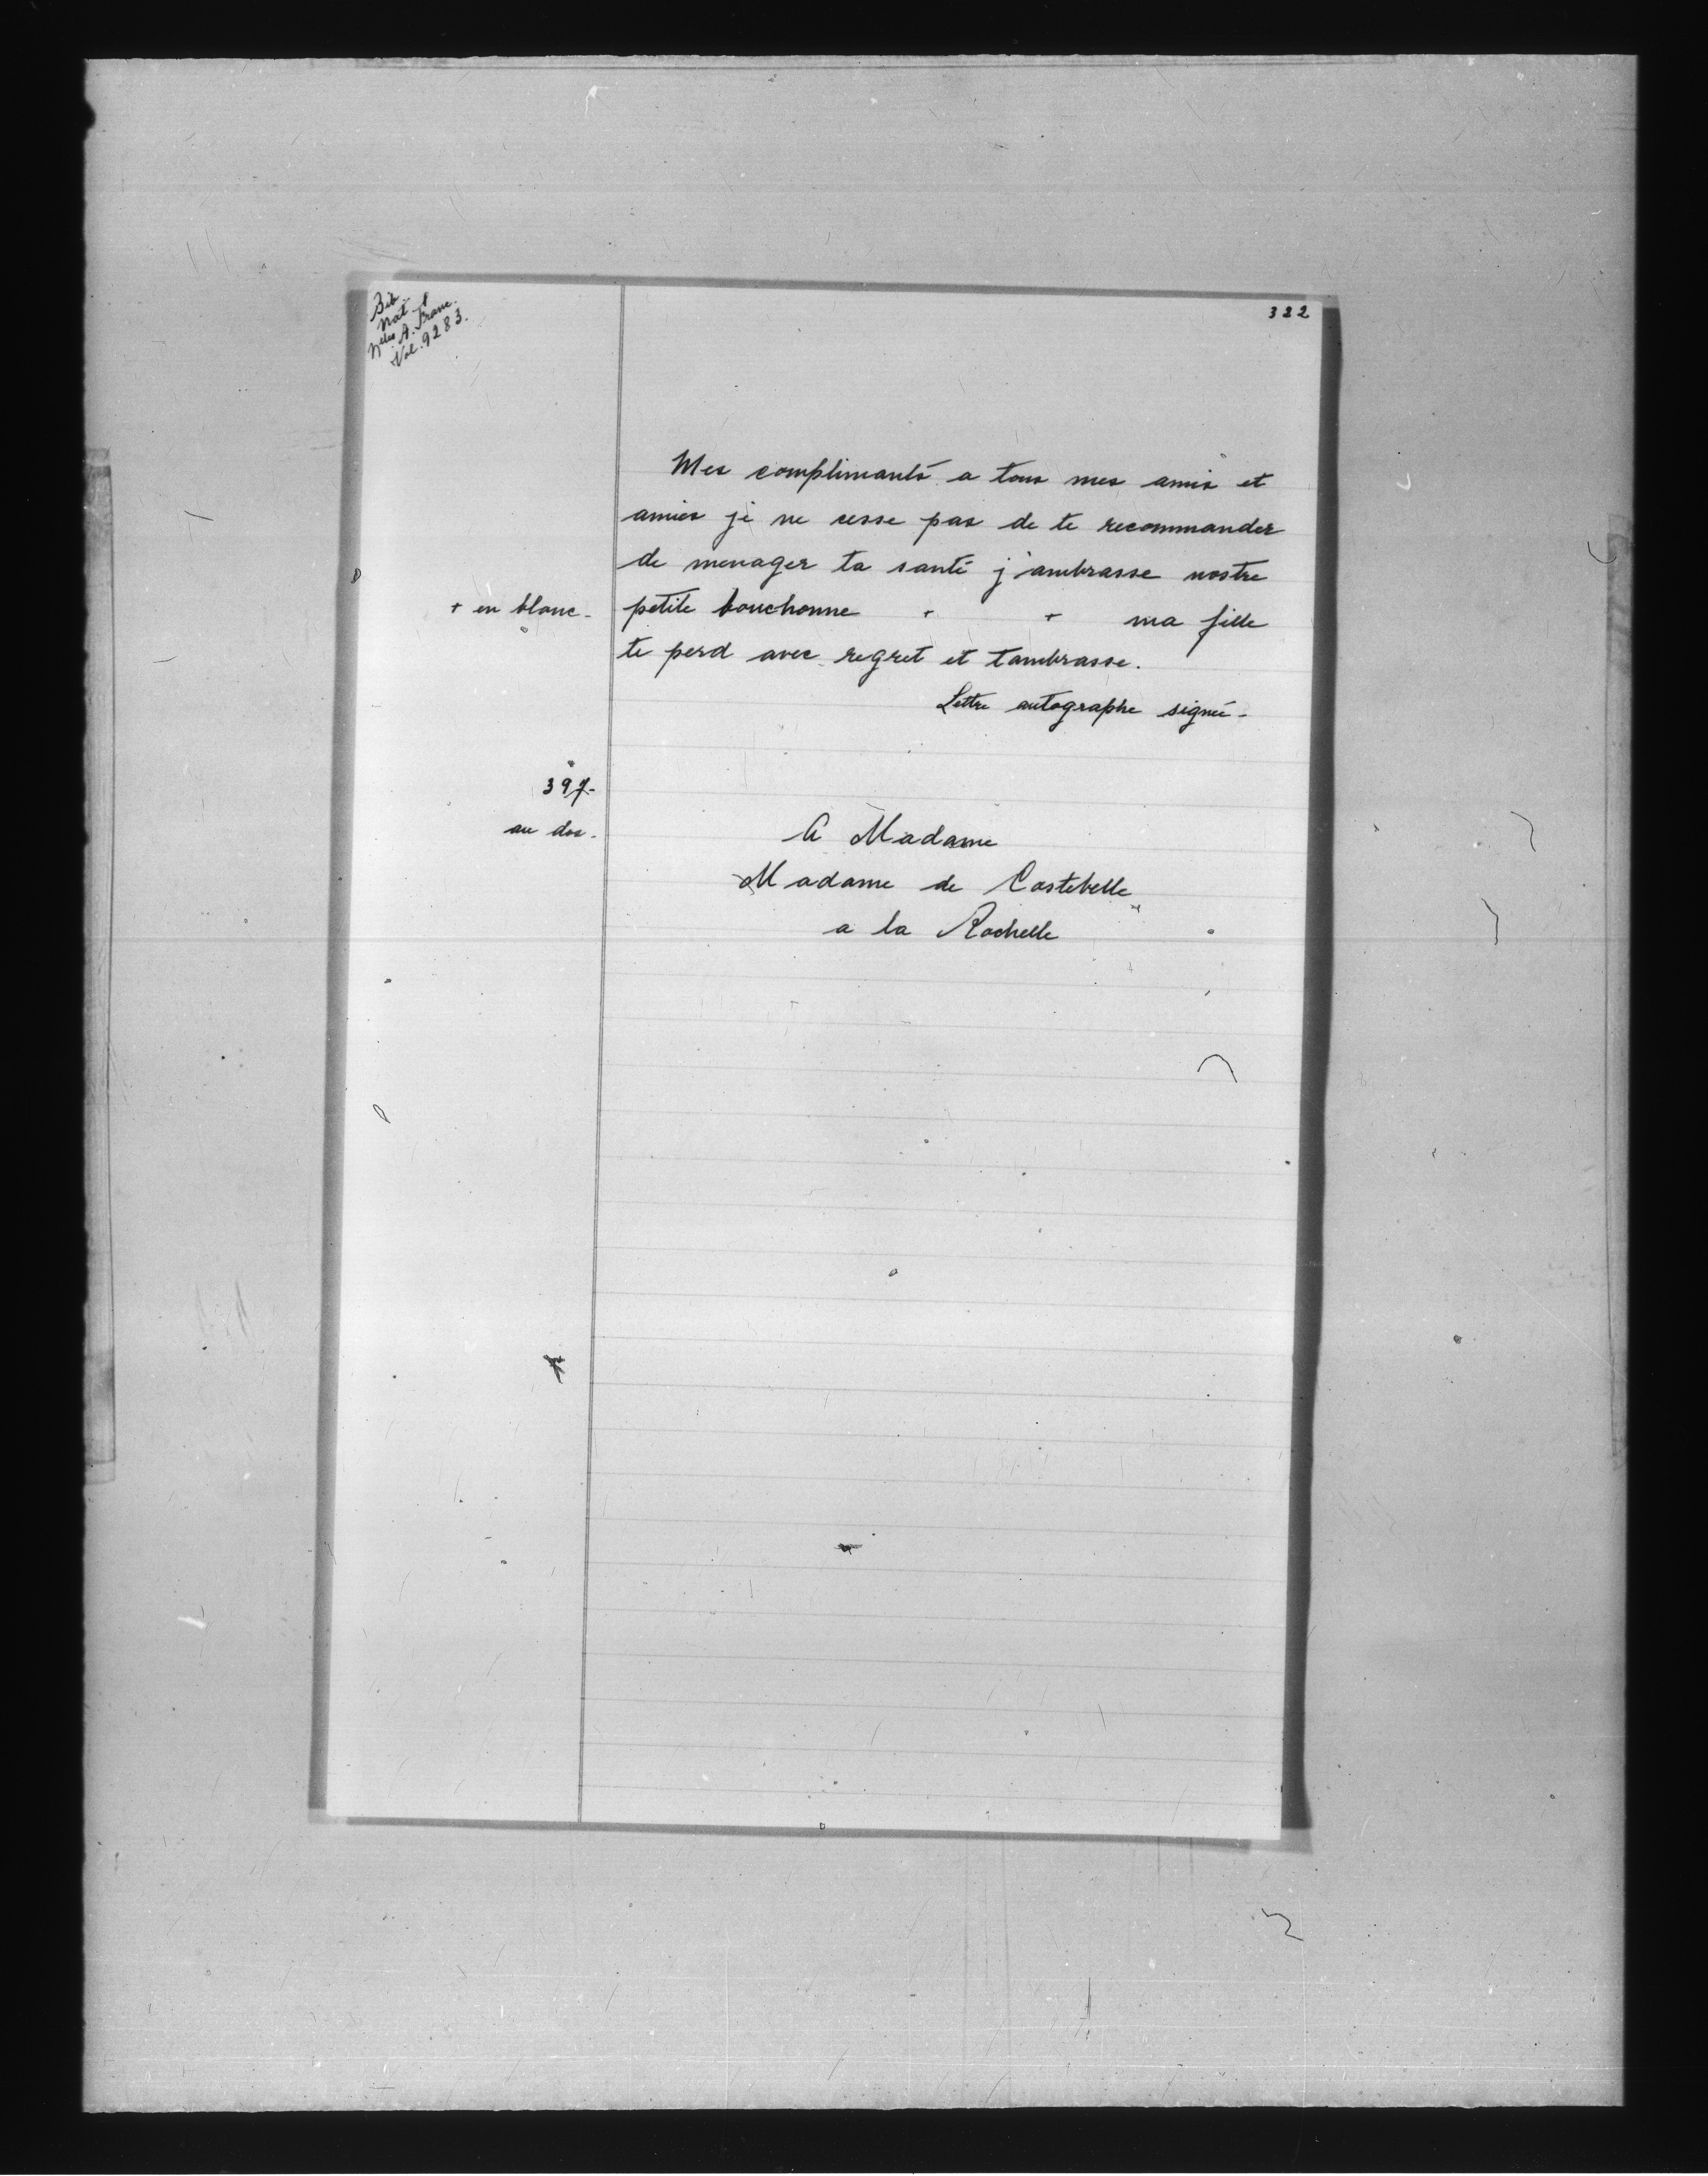 Bib.
Nat.
Nelles A. Franc.
Vol. 9283.
322
Mes complimants a tous mes amis et
amies je ne cesse pas de te recommander
de menager ta santé j'ambrasse nostre
+ en blanc - petite bouchonne + + ma fille
te perd avec regret et tambrasse.
Lettre autographe signée -
397 -
au dos -
A Madame
Madame de Costebelle
a la Rochelle